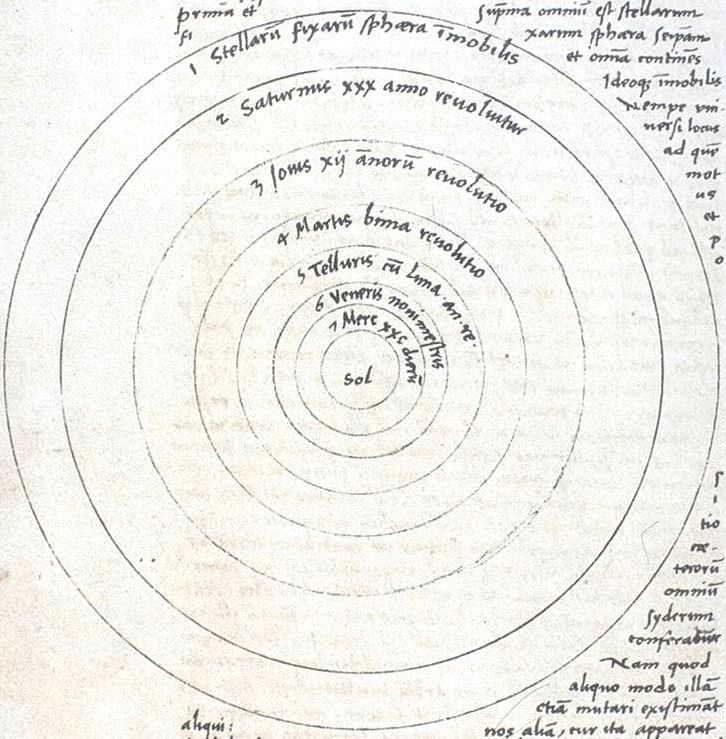 prima et
fi
Supma omniū est stellarum
xarum sphæra seipam
et omīa continēs
Ideoqꝫ īmobilis
Nempe vni
versi locus
ad quē
mot
us
et
p
o
1 Stellarū fixarū sphæra īmobilis
2 Saturnus xxx anno reuoluitur
3 Jouis xij ānorū reuolutio
4 Martis bima reuolutio
5 Telluris cū Luna . an . re
6 Veneris nonimestris
7 Merc xxc dierū
Sol
s
i
tio
cæ-
terorū
omniū
syderum
conferatur
Nam quod
aliquo modo illā
etiā mutari existimāt
aliqui:
nos aliā, cur ita appareat